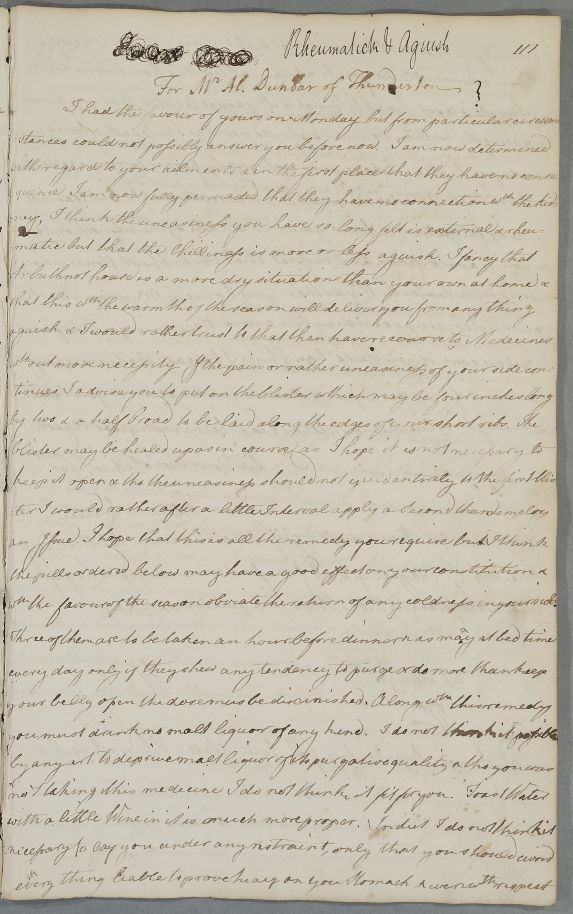 Rheumatick & Aguish 111
For Mr Al. Dunbar of Thunderton
I had the favour of yours on Monday but from particular circum
stances could not possibly answer you before now. I am now determined
with regard to your ailments & in the first place that they have no conse
quence. I am now fully persuaded that they have no connection wth the Kid
neys, I think the uneasiness you have so long felt is external & rheu
matic but that the Chilliness is more or less aguish. I fancy that
Arbuthnot house is a more dry situation than your own at home &
that this wth the warmth of the season will deliver you from any thing
aguish & I would rather trust to that than have recourse to Medecines
without more necessity. If the pain or rather uneasiness of your side con:
tinues I advise you to put on the blister which may be four inches long
by two & a half broad to be laid along the edges of your short ribs. The
blister may be healed up as in course, as I hope it is not necessary to
keep it open & tho the uneasiness should not yield entirely to the first blis
ter I would rather after a little Interval apply a Second than employ
an Issue. I hope that this is all the remedy you require but I think
the pills ordered below may have a good effect on your constitution &
wth the favour of the season obviate the return of any coldness in your side.
Three of them are to be taken an hour before dinner & as many at bed time
every day only if they shew any tendency to purge or do more than keep
your belly open the dose must be diminished. Along wth this remedy
you must drink no malt liquor of any kind. I do not think it possible
by any art to deprive malt liquor of its purgative quality & tho you was
not taking this medicine I do not think it fit for you. Toast Water
with a little Wine in it is much more proper. In diet I do not think it
necessary to lay you under any restraint, only that you should avoid
every thing liable to prove heavy on your Stomach & even wth respect